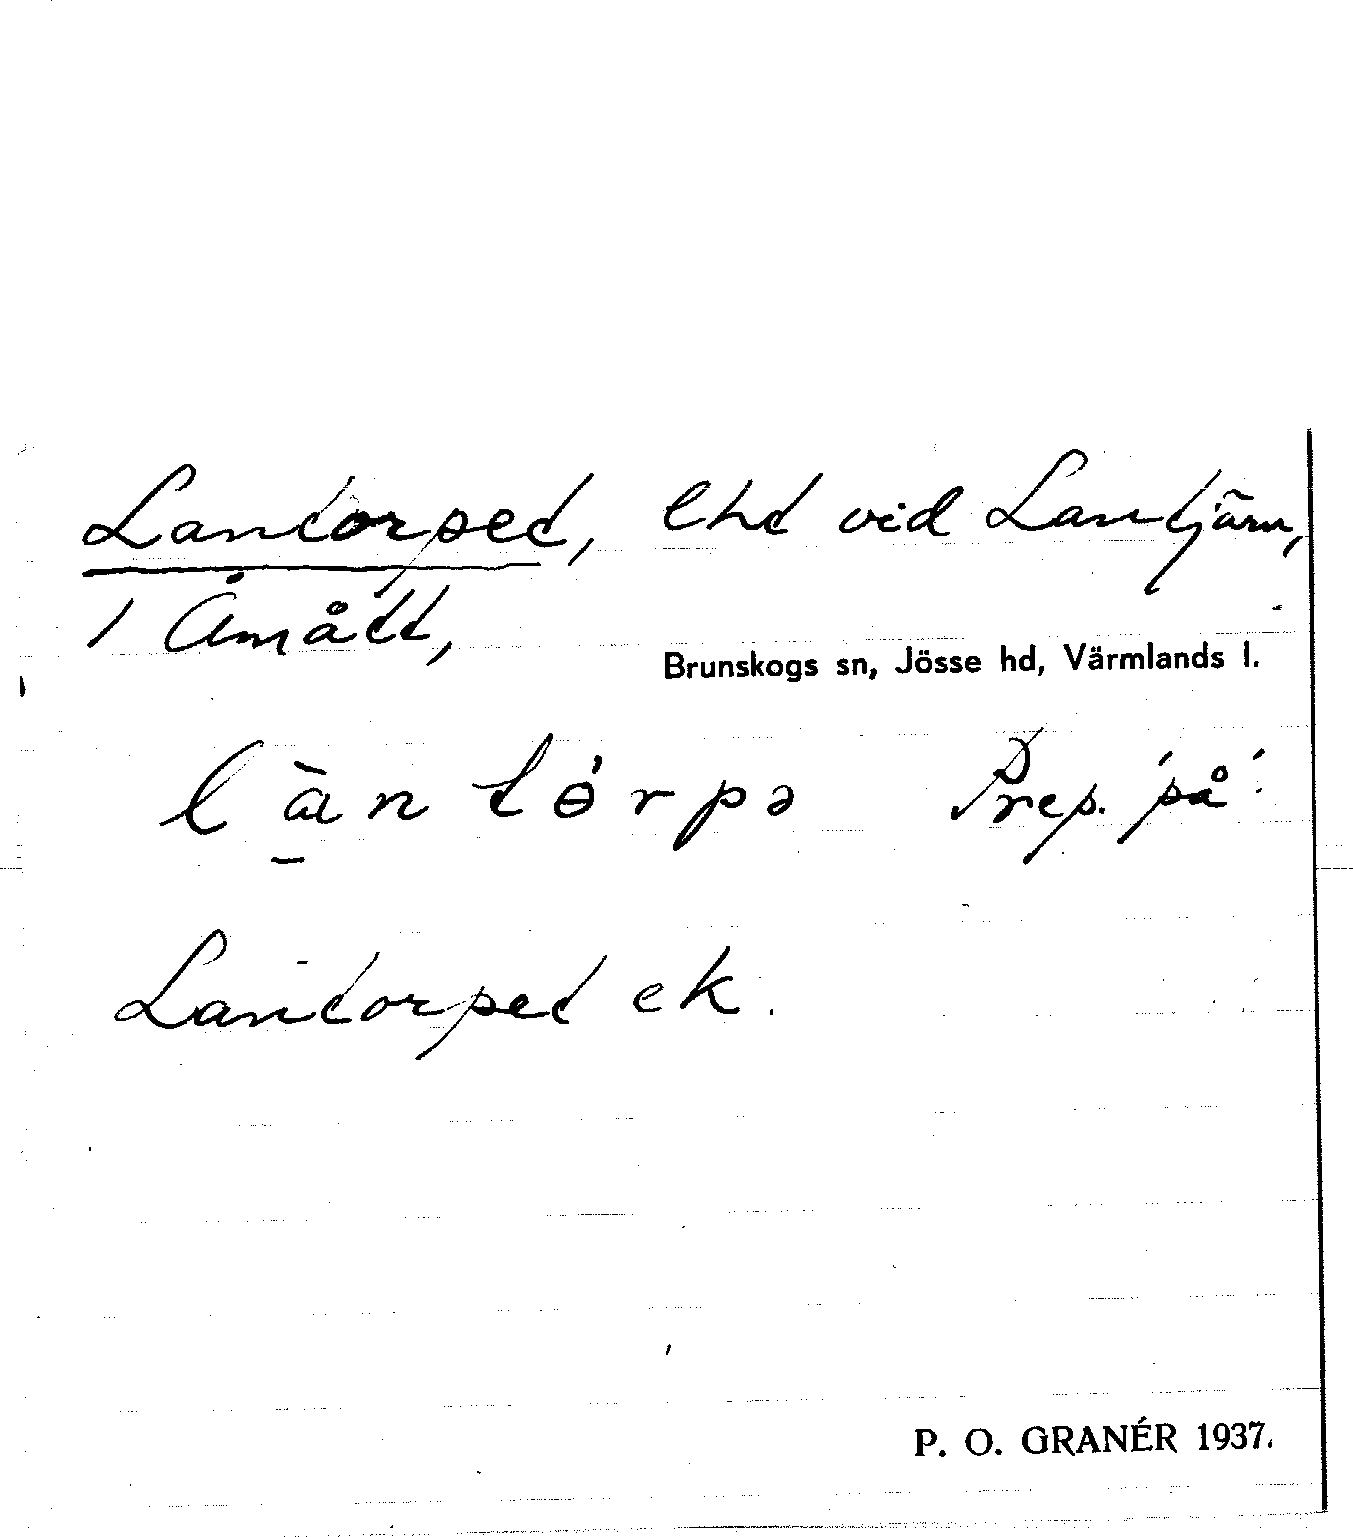 Lantorpet, lht vid Lantjärn,
1 Åmått,
Brunskogs sn, Jösse hd, Värmlands l.
l à n t ɵ́ r p ə Prep. 'på'.
Lantorpet ek.
P. O. GRANÉR 1937.